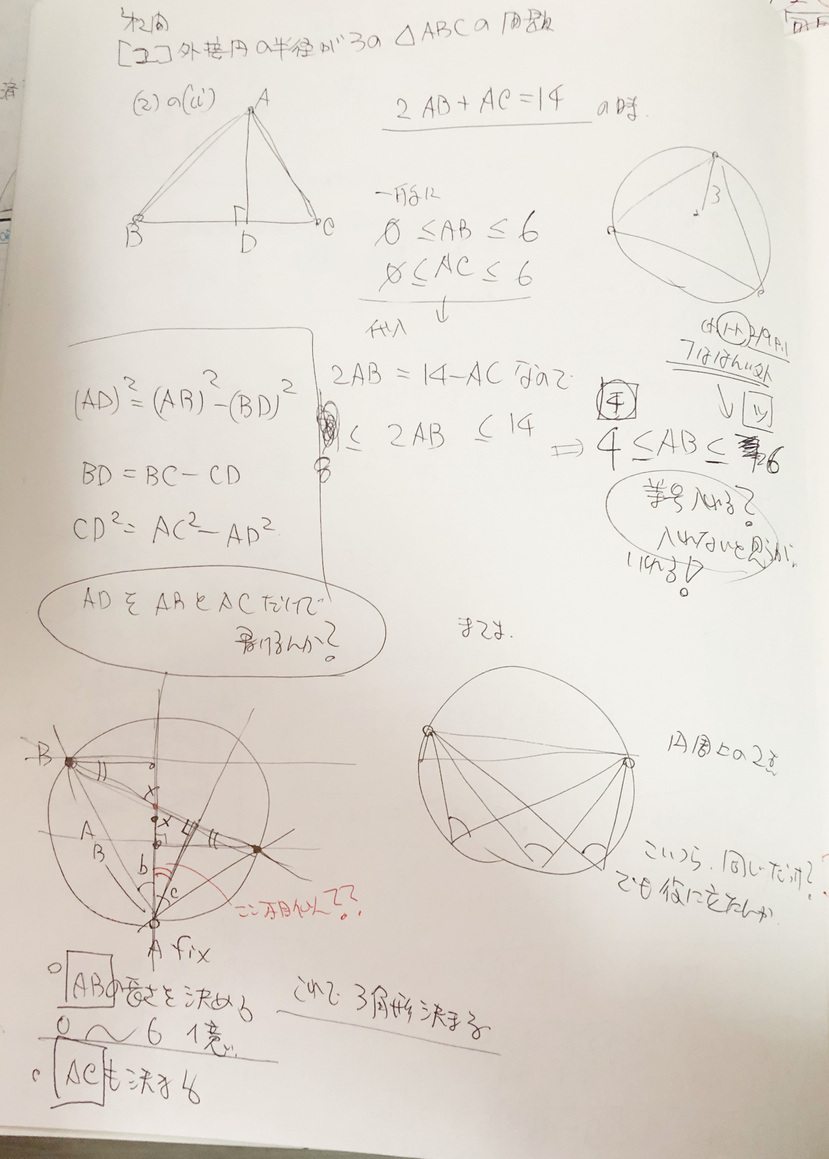 [2] 外接円の半径が3の △ABCの問題
(2)の(ii)
A
B
D
C
2AB + AC = 14 の時.
3
一般に
0 ≤ AB ≤ 6
0 ≤ AC ≤ 6
代入 ↓
2AB = 14-AC なので
8 ≤ 2AB ≤ 14
⇒ 4 ≤ AB ≤ 6
7ははんい外
↓
チ
ツ
等号入れる?
入れないと思うが,
いれる!
(AD)² = (AB)² - (BD)²
BD = BC - CD
CD² = AC² - AD²
ADを ABとACだけで
書けるんか?
または.
B
A
B
x
x
b
c
A fix
円周上の2点
こいつら、同じだっけ?
でも役に立たんか
AB の長さを決める
0 〜 6
これで 3角形決まる
AC も決まる